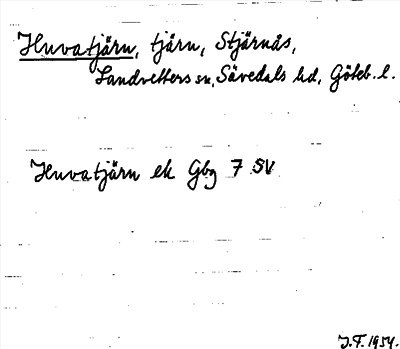 Huvatjärn, tjärn, Stjärnås,
Landvetters sn, Sävedals hd, Göteb. l.
Huvatjärn ek Gbg 7 SV
J.F. 1954.